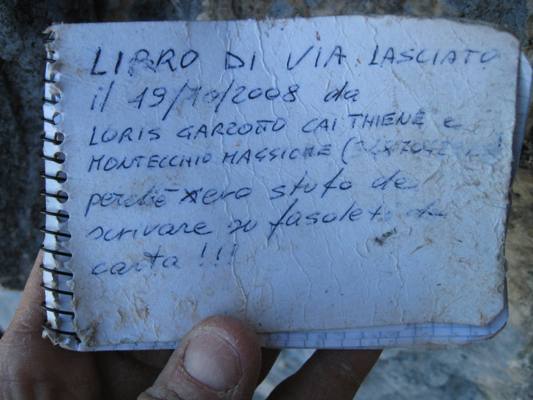 LIBRO DI VIA LASCIATO
il 19/10/2008 da
LORIS GARZOTTO CAI THIENE e
MONTECCHIO MAGGIORE
perchè ero stufo de
scrivare so fasoleti de
carta !!!